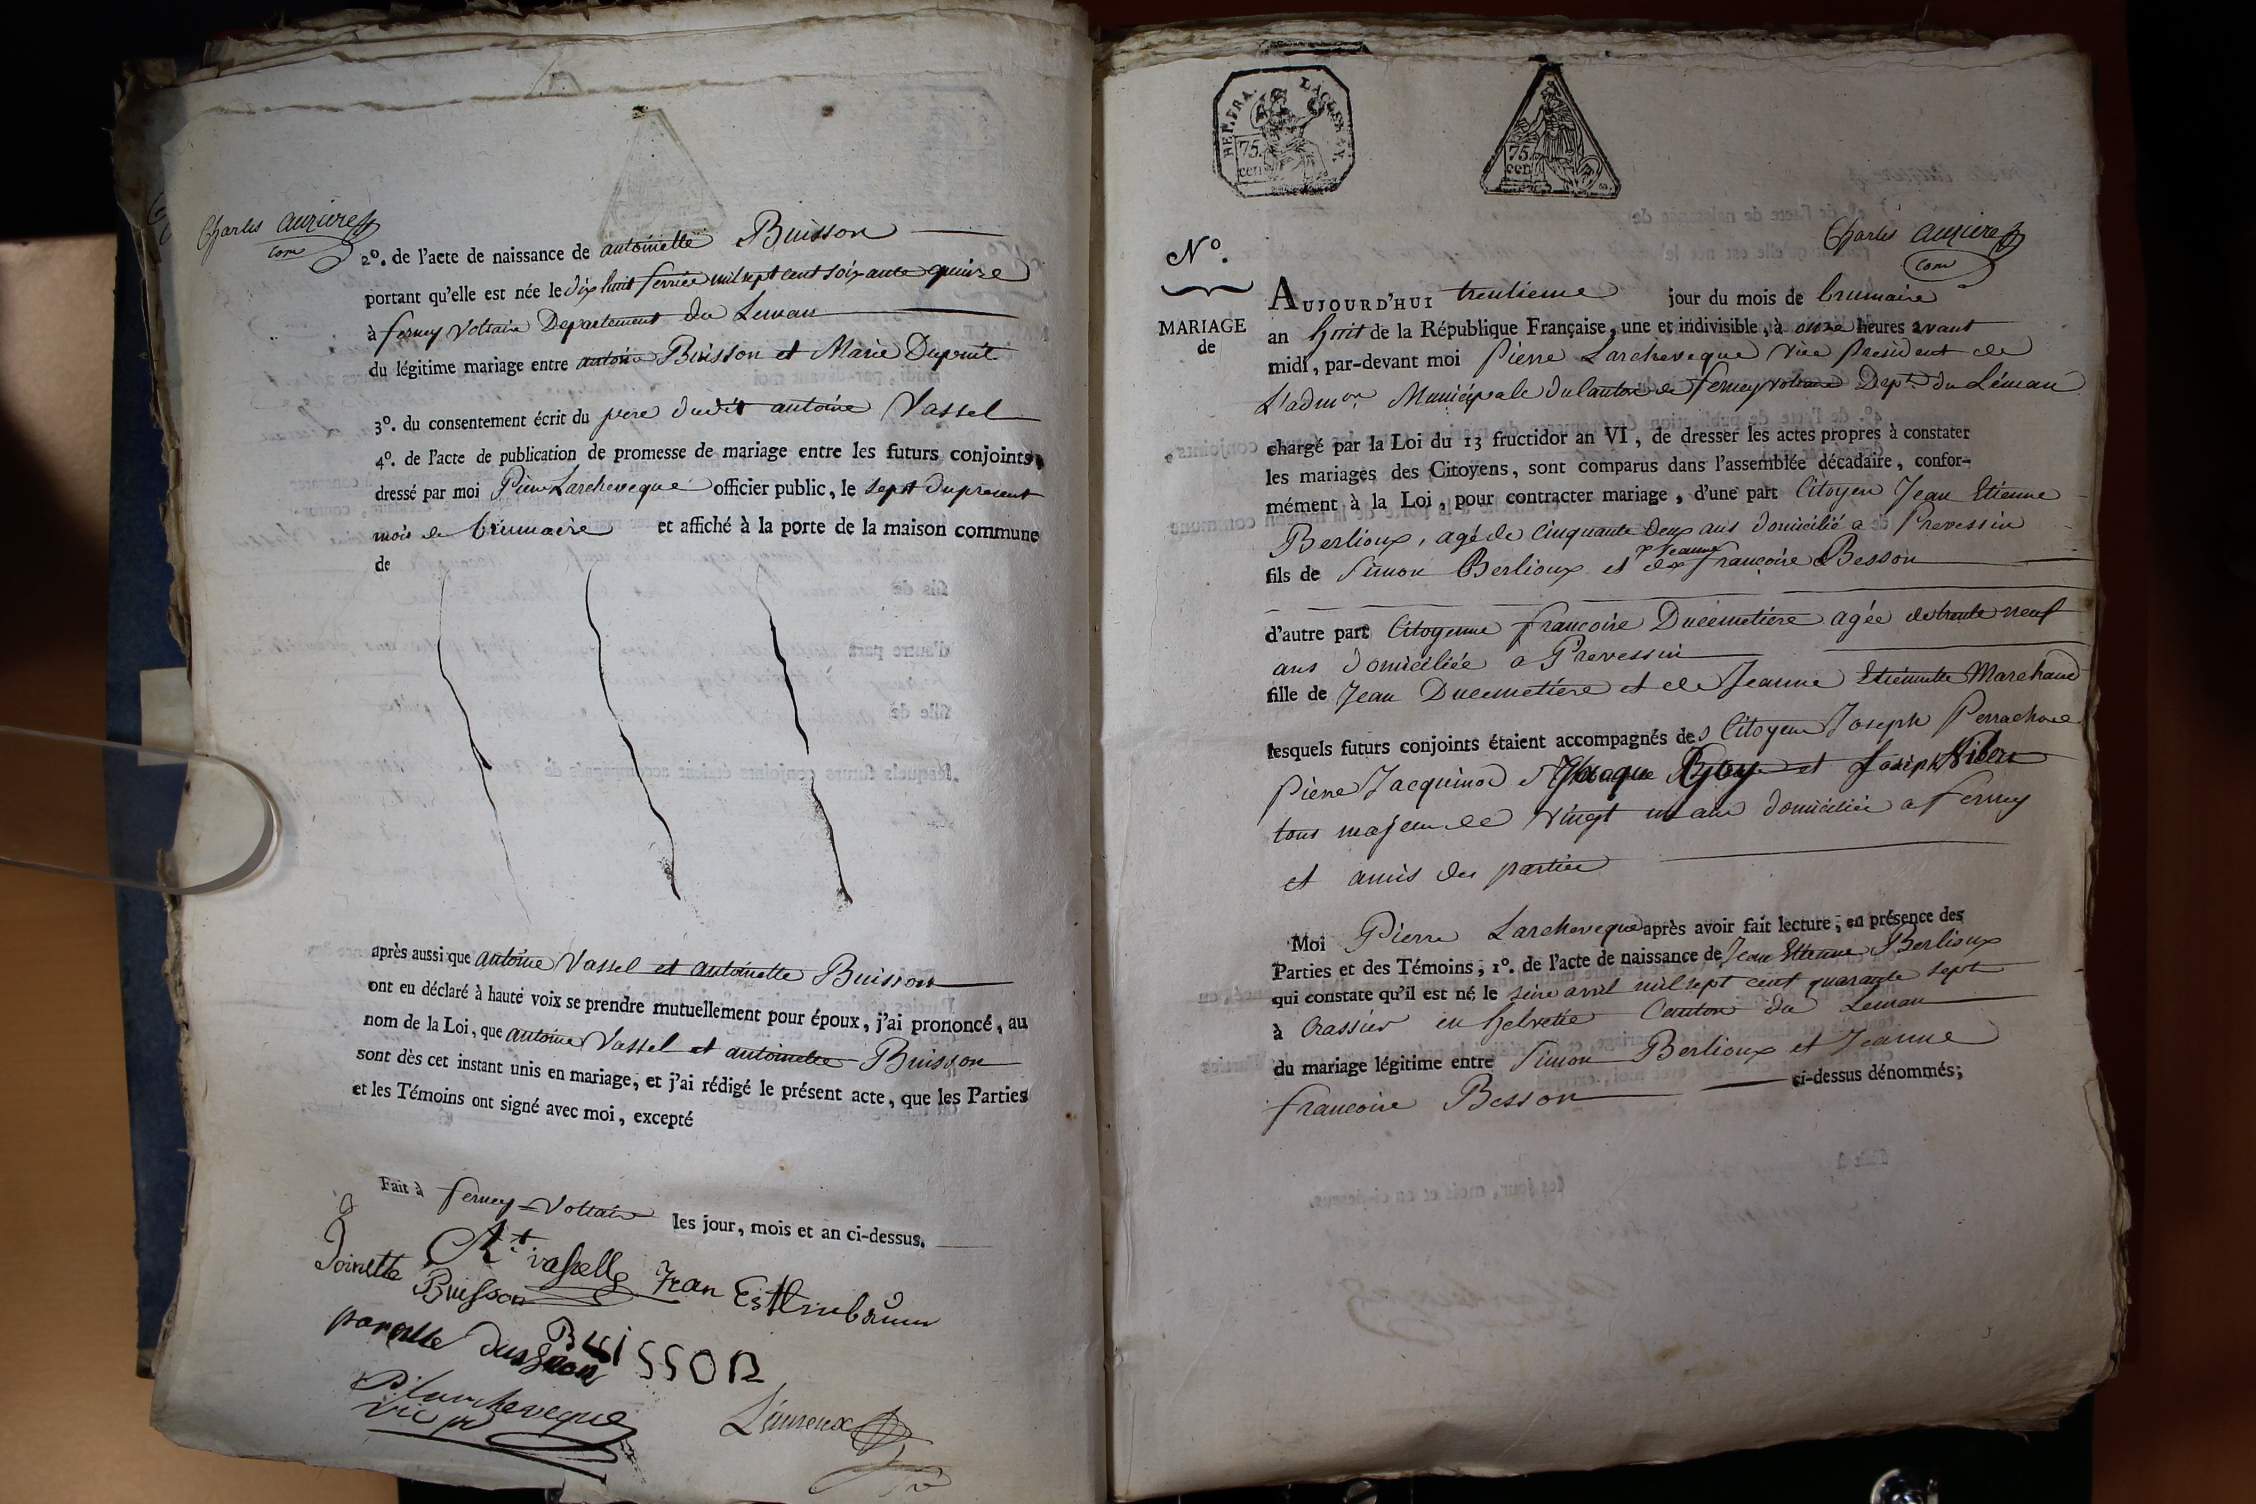 Charles auziere
com
2º. de l'acte de naissance de antoinette Buisson
portant qu'elle est née le dix huit ferrier mil sept cent soixante quinze
à ferney voltaire Departement du Leman
du légitime mariage entre antoine Buisson et Marie Dupuit
3º. du consentement écrit du pere dudit antoine Vassel
4º. de l'acte de publication de promesse de mariage entre les futurs conjoints,
dressé par moi Pierre Larcheveque officier public, le sept du present
mois de brumaire et affiché à la porte de la maison commune
de
après aussi que antoine Vassel et antoinette Buisson
ont eu déclaré à haute voix se prendre mutuellement pour époux, j'ai prononcé, au
nom de la Loi, que antoine Vassel et antoinette Buisson
sont dès cet instant unis en mariage, et j'ai rédigé le présent acte, que les Parties
et les Témoins ont signé avec moi, excepté
Fait à ferney-Voltaire les jour, mois et an ci-dessus.
At. vassell Jean
Toinette Buisson
BuissOn
P. Larcheveque
vic pt
REP. FRA.
75.
cen
75.
cen
Charles auziere
com
Nº.
MARIAGE
de
AUJOURD'HUI trentieme jour du mois de brumaire
an huit de la République Française, une et indivisible, à onze heures avant
midi, par-devant moi Pierre Larcheveque vice President de
L'admon Municipale du Canton de ferney voltaire Dept. du Léman
chargé par la Loi du 13 fructidor an VI, de dresser les actes propres à constater
les mariages des Citoyens, sont comparus dans l'assemblée décadaire, confor-
mément à la Loi, pour contracter mariage, d'une part Citoyen Jean Etienne
Berlioux, agé de cinquante deux ans domicilié a Prevessin
fils de Simon Berlioux et de Jeanne francoise Besson
d'autre part Citoyenne francoise Ducimetiere agée de trente neuf
ans domiciliée a Prevessin
fille de Jean Ducimetiere et de Jeanne Etiennette Marchand
lesquels futurs conjoints étaient accompagnés des Citoyens Joseph
Pierre Jacquinod et Joseph
tous majeur de vingt un ans domiciliés a ferney
et amis des parties
Moi Pierre Larcheveque après avoir fait lecture, en présence des
Parties et des Témoins, 1º. de l'acte de naissance de Jean Etienne Berlioux
qui constate qu'il est né le seize avril mil sept cent quarante sept
à Crassier en helvetie Canton du Leman
du mariage légitime entre Simon Berlioux et Jeanne
francoise Besson ci-dessus dénommés;